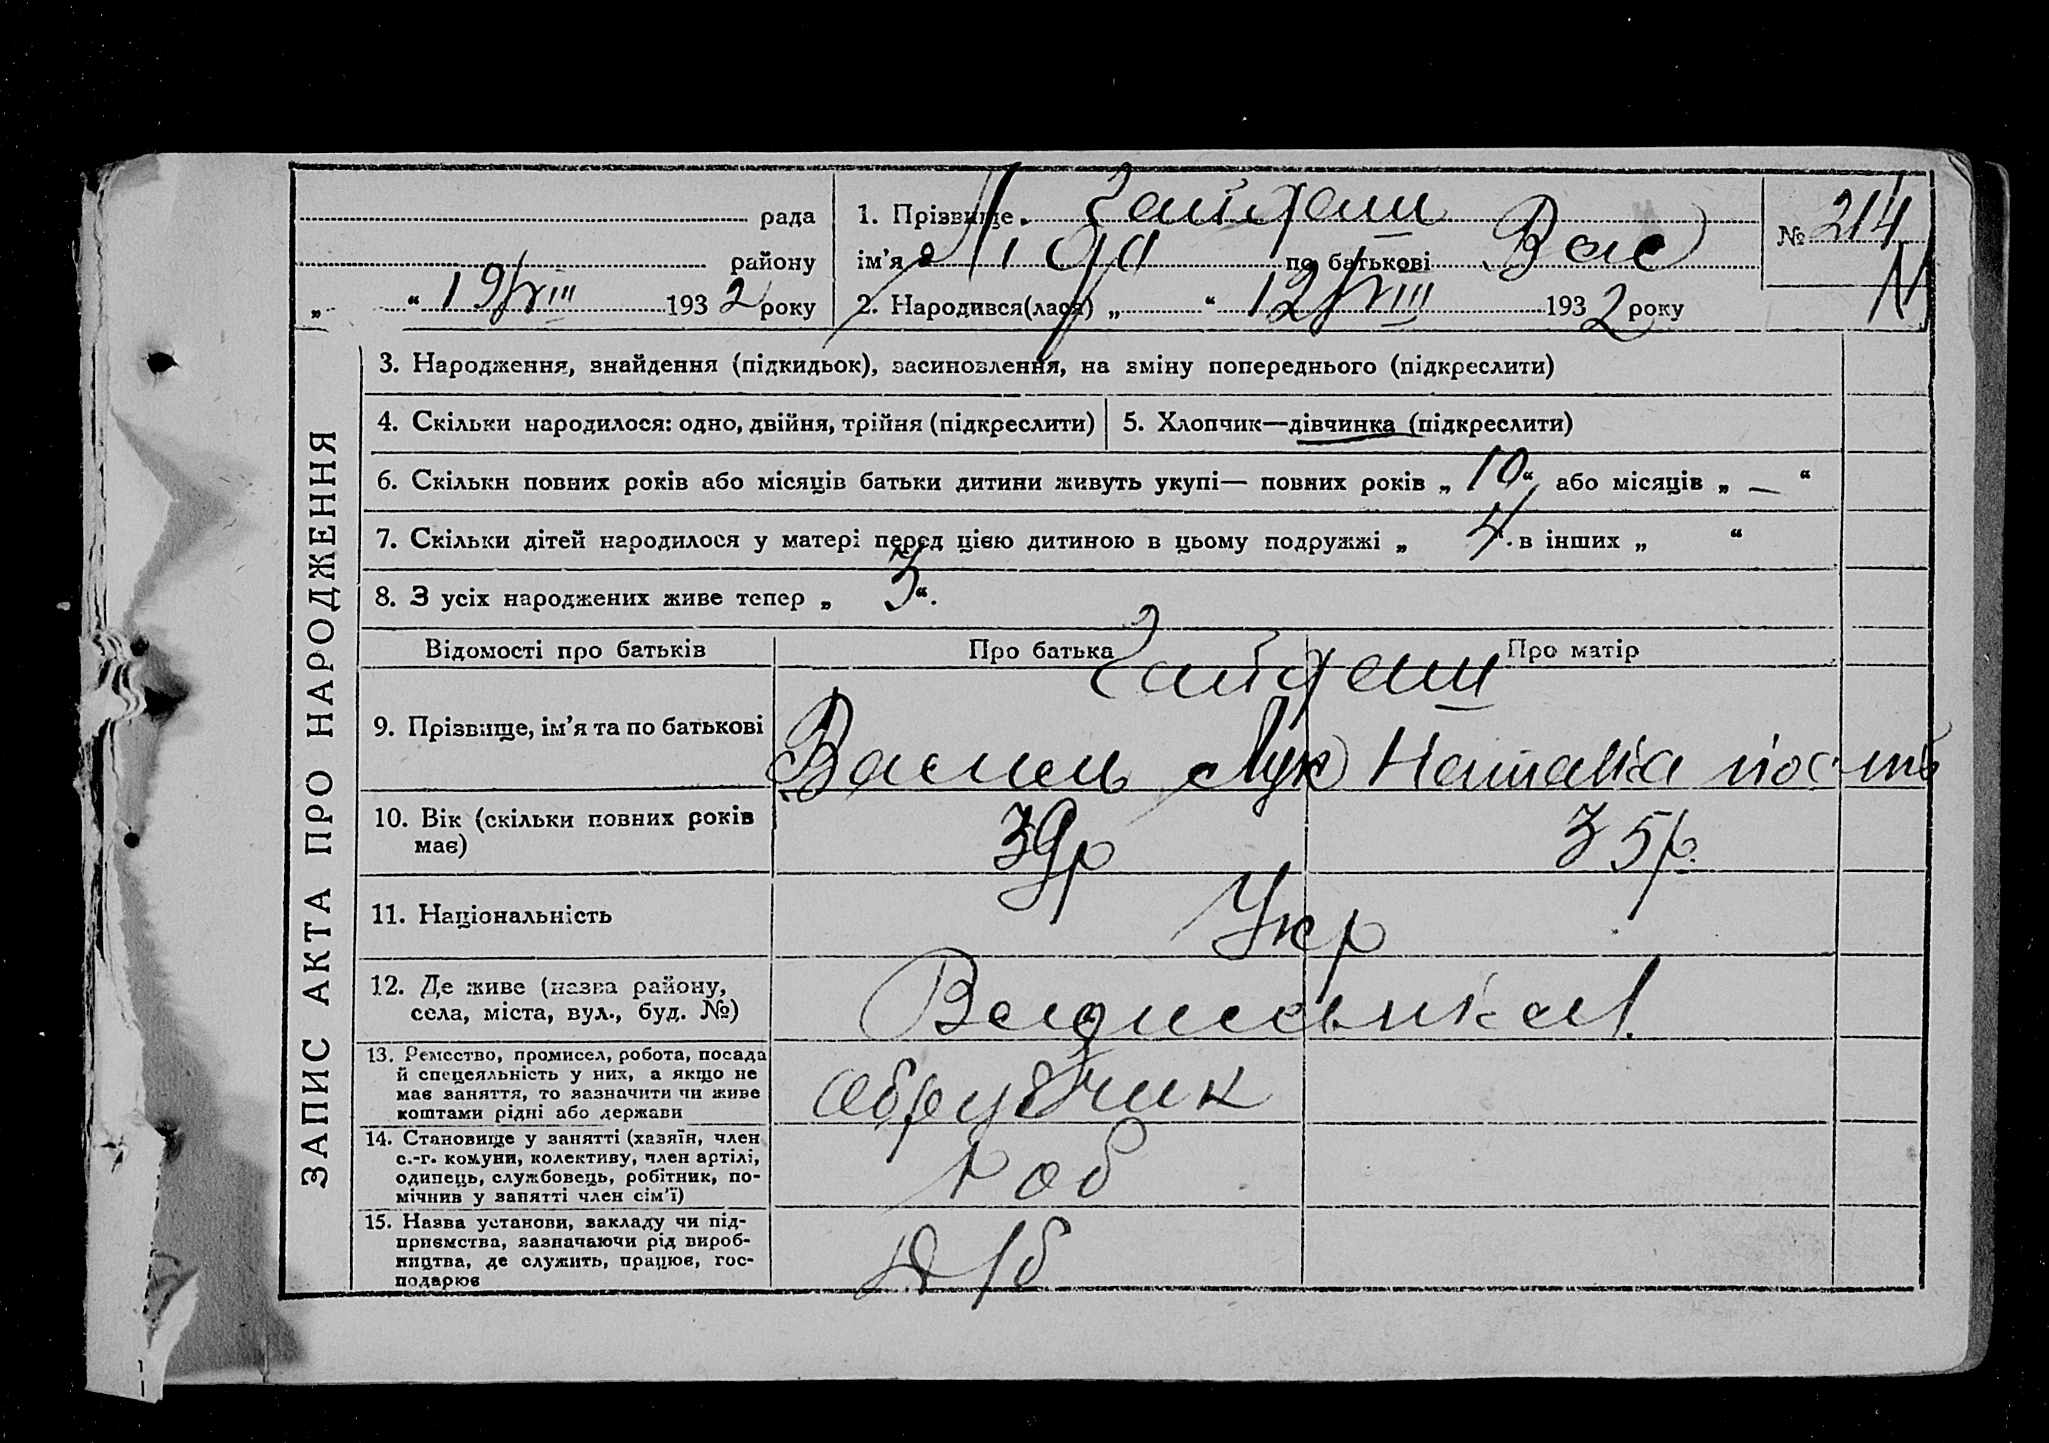 рада
району
„ “ 19/VIII 1932 року
1. Прізвище
ім’я по батькові Вас
2. Народився(лася) „ “ 12/VIII 1932 року
№ 214
ЗАПИС АКТА ПРО НАРОДЖЕННЯ
3. Народження, знайдення (підкидьок), засиновлення, на зміну попереднього (підкреслити)
4. Скільки народилося: одно, двійня, трійня (підкреслити)
5. Хлопчик—дівчинка (підкреслити)
6. Скільки повних років або місяців батьки дитини живуть укупі— повних років „ 10 “ або місяців „ — “
7. Скільки дітей народилося у матері перед цією дитиною в цьому подружжі „ 4 “. в інших „ “
8. З усіх народжених живе тепер „ 3 “.
Відомості про батьків Про батька Про матір
9. Прізвище, ім’я та по батькові
Василь Лук Наталка
10. Вік (скільки повних років
має)
39р 35р.
11. Національність
Укр
12. Де живе (назва району,
села, міста, вул., буд. №)
13. Ремество, промисел, робота, посада
й спецеяльність у них, а якщо не
має заняття, то зазначити чи живе
коштами рідні або держави
14. Становище у занятті (хазяїн, член
с.-г. комуни, колективу, член артілі,
одинець, службовець, робітник, по-
мічнив у занятті член сім’ї)
Роб
15. Назва установи, закладу чи під-
приємства, зазначаючи рід вироб-
ництва, де служить, працює, гос-
подарює